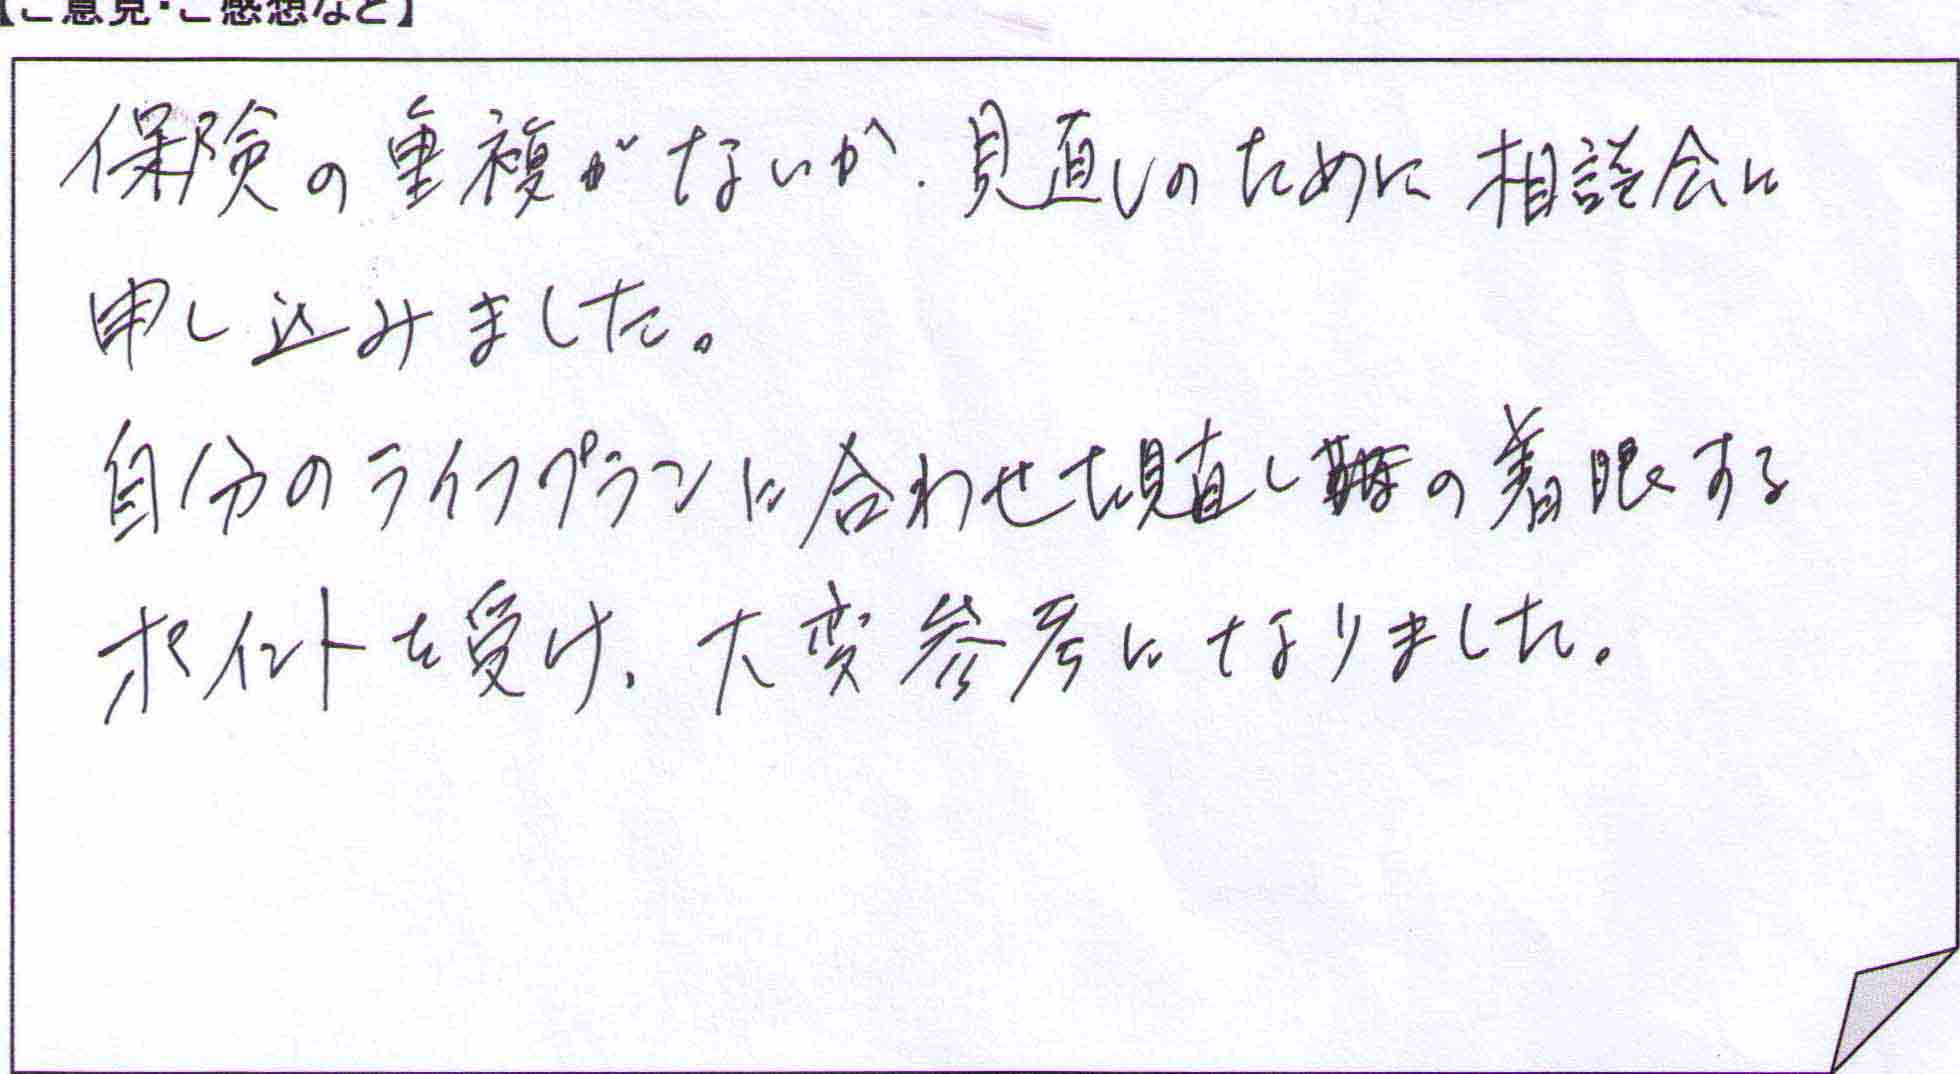 【ご意見・ご感想など】
保険の重複がないか、見直しのために相談会に
申し込みました。
自分のライフプランに合わせた見直しの着眼する
ポイントを受け、大変参考になりました。